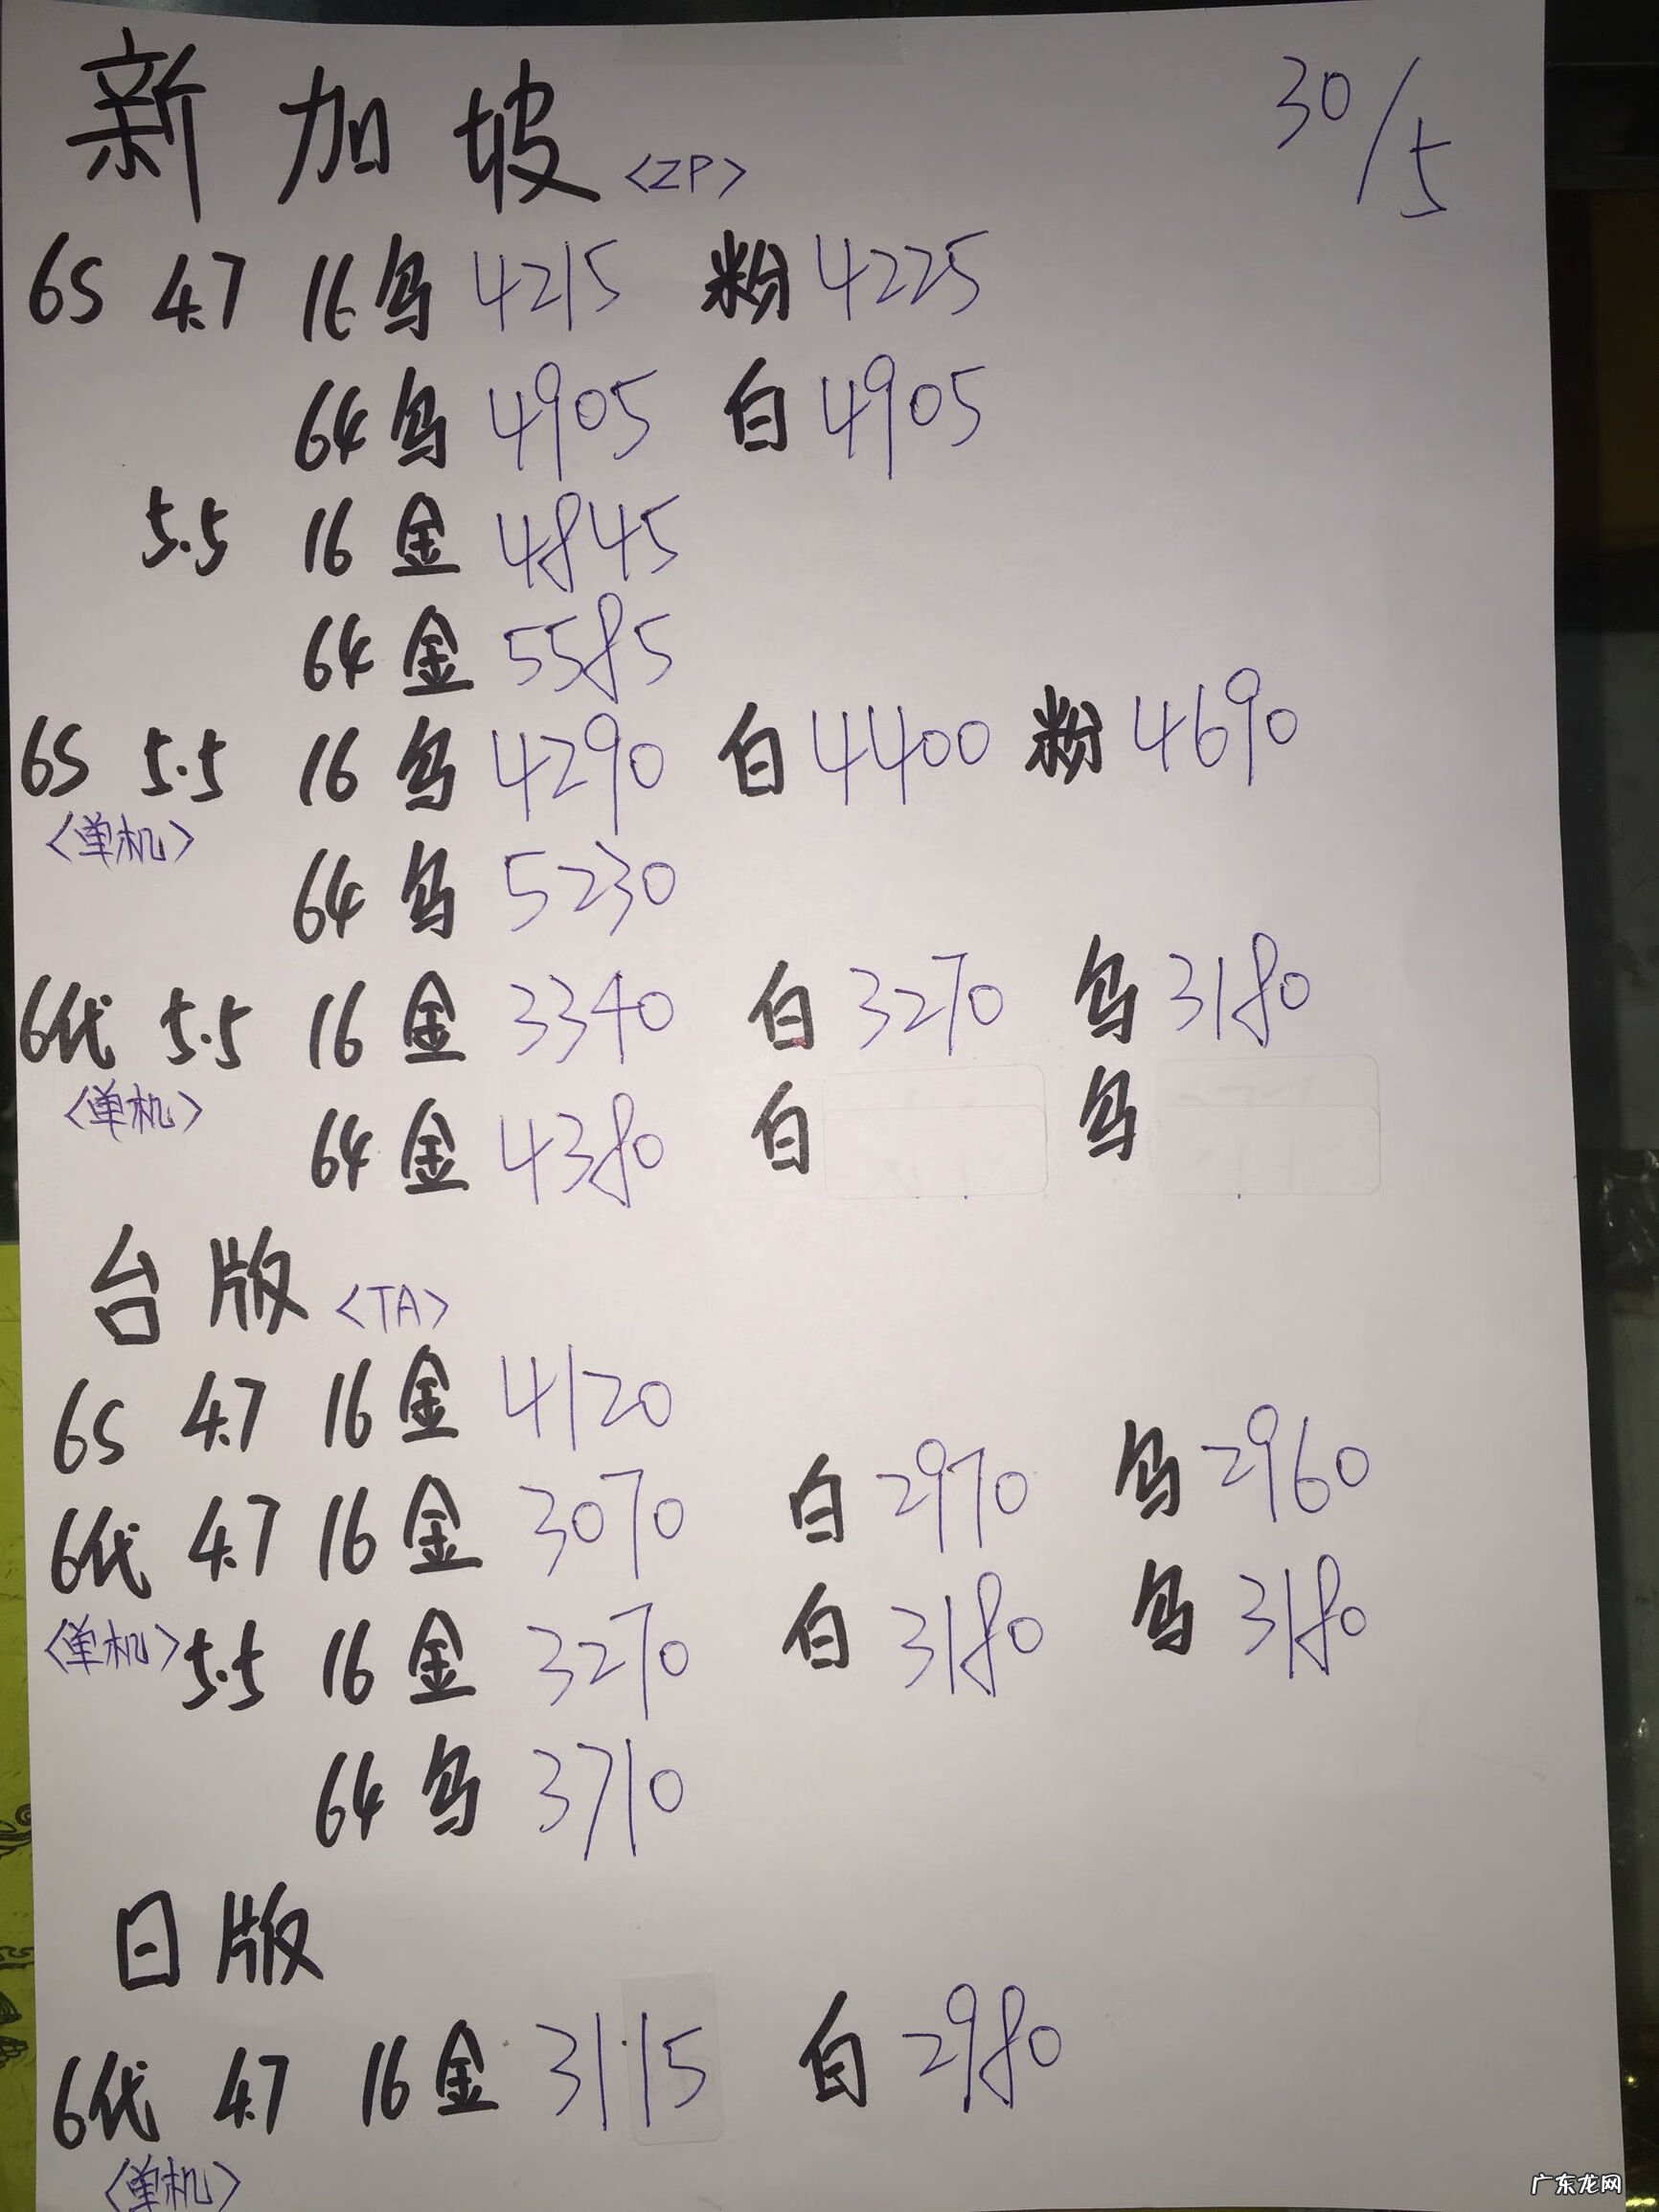 新加坡<ZP> 30/5
6S 4.7 16 乌 4215 粉 4225
64 乌 4905 白 4905
5.5 16 金 4845
64 金 5585
6S 5.5 16 乌 4290 白 4400 粉 4690
<单机>
64 乌 5230
6代 5.5 16 金 3340 白 3270 乌 3180
<单机>
64 金 4380 白 乌
台版 <TA>
6S 4.7 16 金 4120
6代 4.7 16 金 3070 白 2970 乌 2960
<单机> 5.5 16 金 3270 白 3180 乌 3180
64 乌 3710
日版
6代 4.7 16 金 3115 白 2980
<单机>
广东龙网